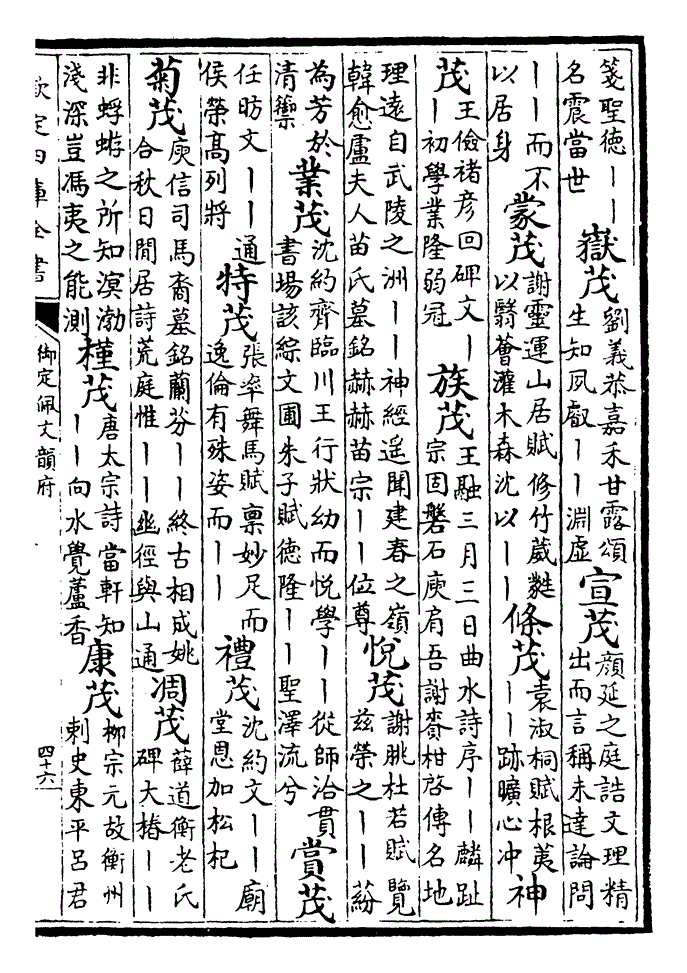 箋聖德丨丨名震當世 嶽茂 劉義恭嘉禾甘露頌生知夙叡丨丨淵虛 宣茂 顔延之庭誥文理精出而言稱未達論問
丨丨而不以居身 蒙茂 謝靈運山居賦修竹葳蕤以翳薈灌木森沈以丨丨 條茂 袁淑桐賦根荑丨丨跡曠心沖 神
茂 王儉褚彦回碑文丨丨初學業隆弱冠 族茂 王融三月三日曲水詩序丨丨麟趾宗固磐石庾肩吾謝賚柑啓傳名地
理遠自武陵之洲丨丨神經遥聞建春之嶺韓愈盧夫人苗氏墓銘赫赫苗宗丨丨位尊 悦茂 謝朓杜若賦覽兹榮之丨丨紛
為芳於清籞 業茂 沈約齊臨川王行狀幼而悦學丨丨從師洽貫書場該綜文圃朱子賦德隆丨丨聖澤流兮 賞茂
任昉文丨丨通侯榮高列將 特茂 張率舞馬賦禀妙足而逸倫有殊姿而丨丨 禮茂 沈約文丨丨廟堂恩加松杞
菊茂 庾信司馬裔墓銘蘭芬丨丨終古相成姚合秋日閒居詩荒庭惟丨丨幽徑與山通 凋茂 薛道衡老氏碑大椿丨丨
非蜉蝣之所知溟渤淺深豈馮夷之能測 種茂 唐太宗詩當軒知丨丨向水覺蘆香 康茂 柳宗元故衡州刺史東平呂君
欽定四庫全書
御定佩文韻府
四十六